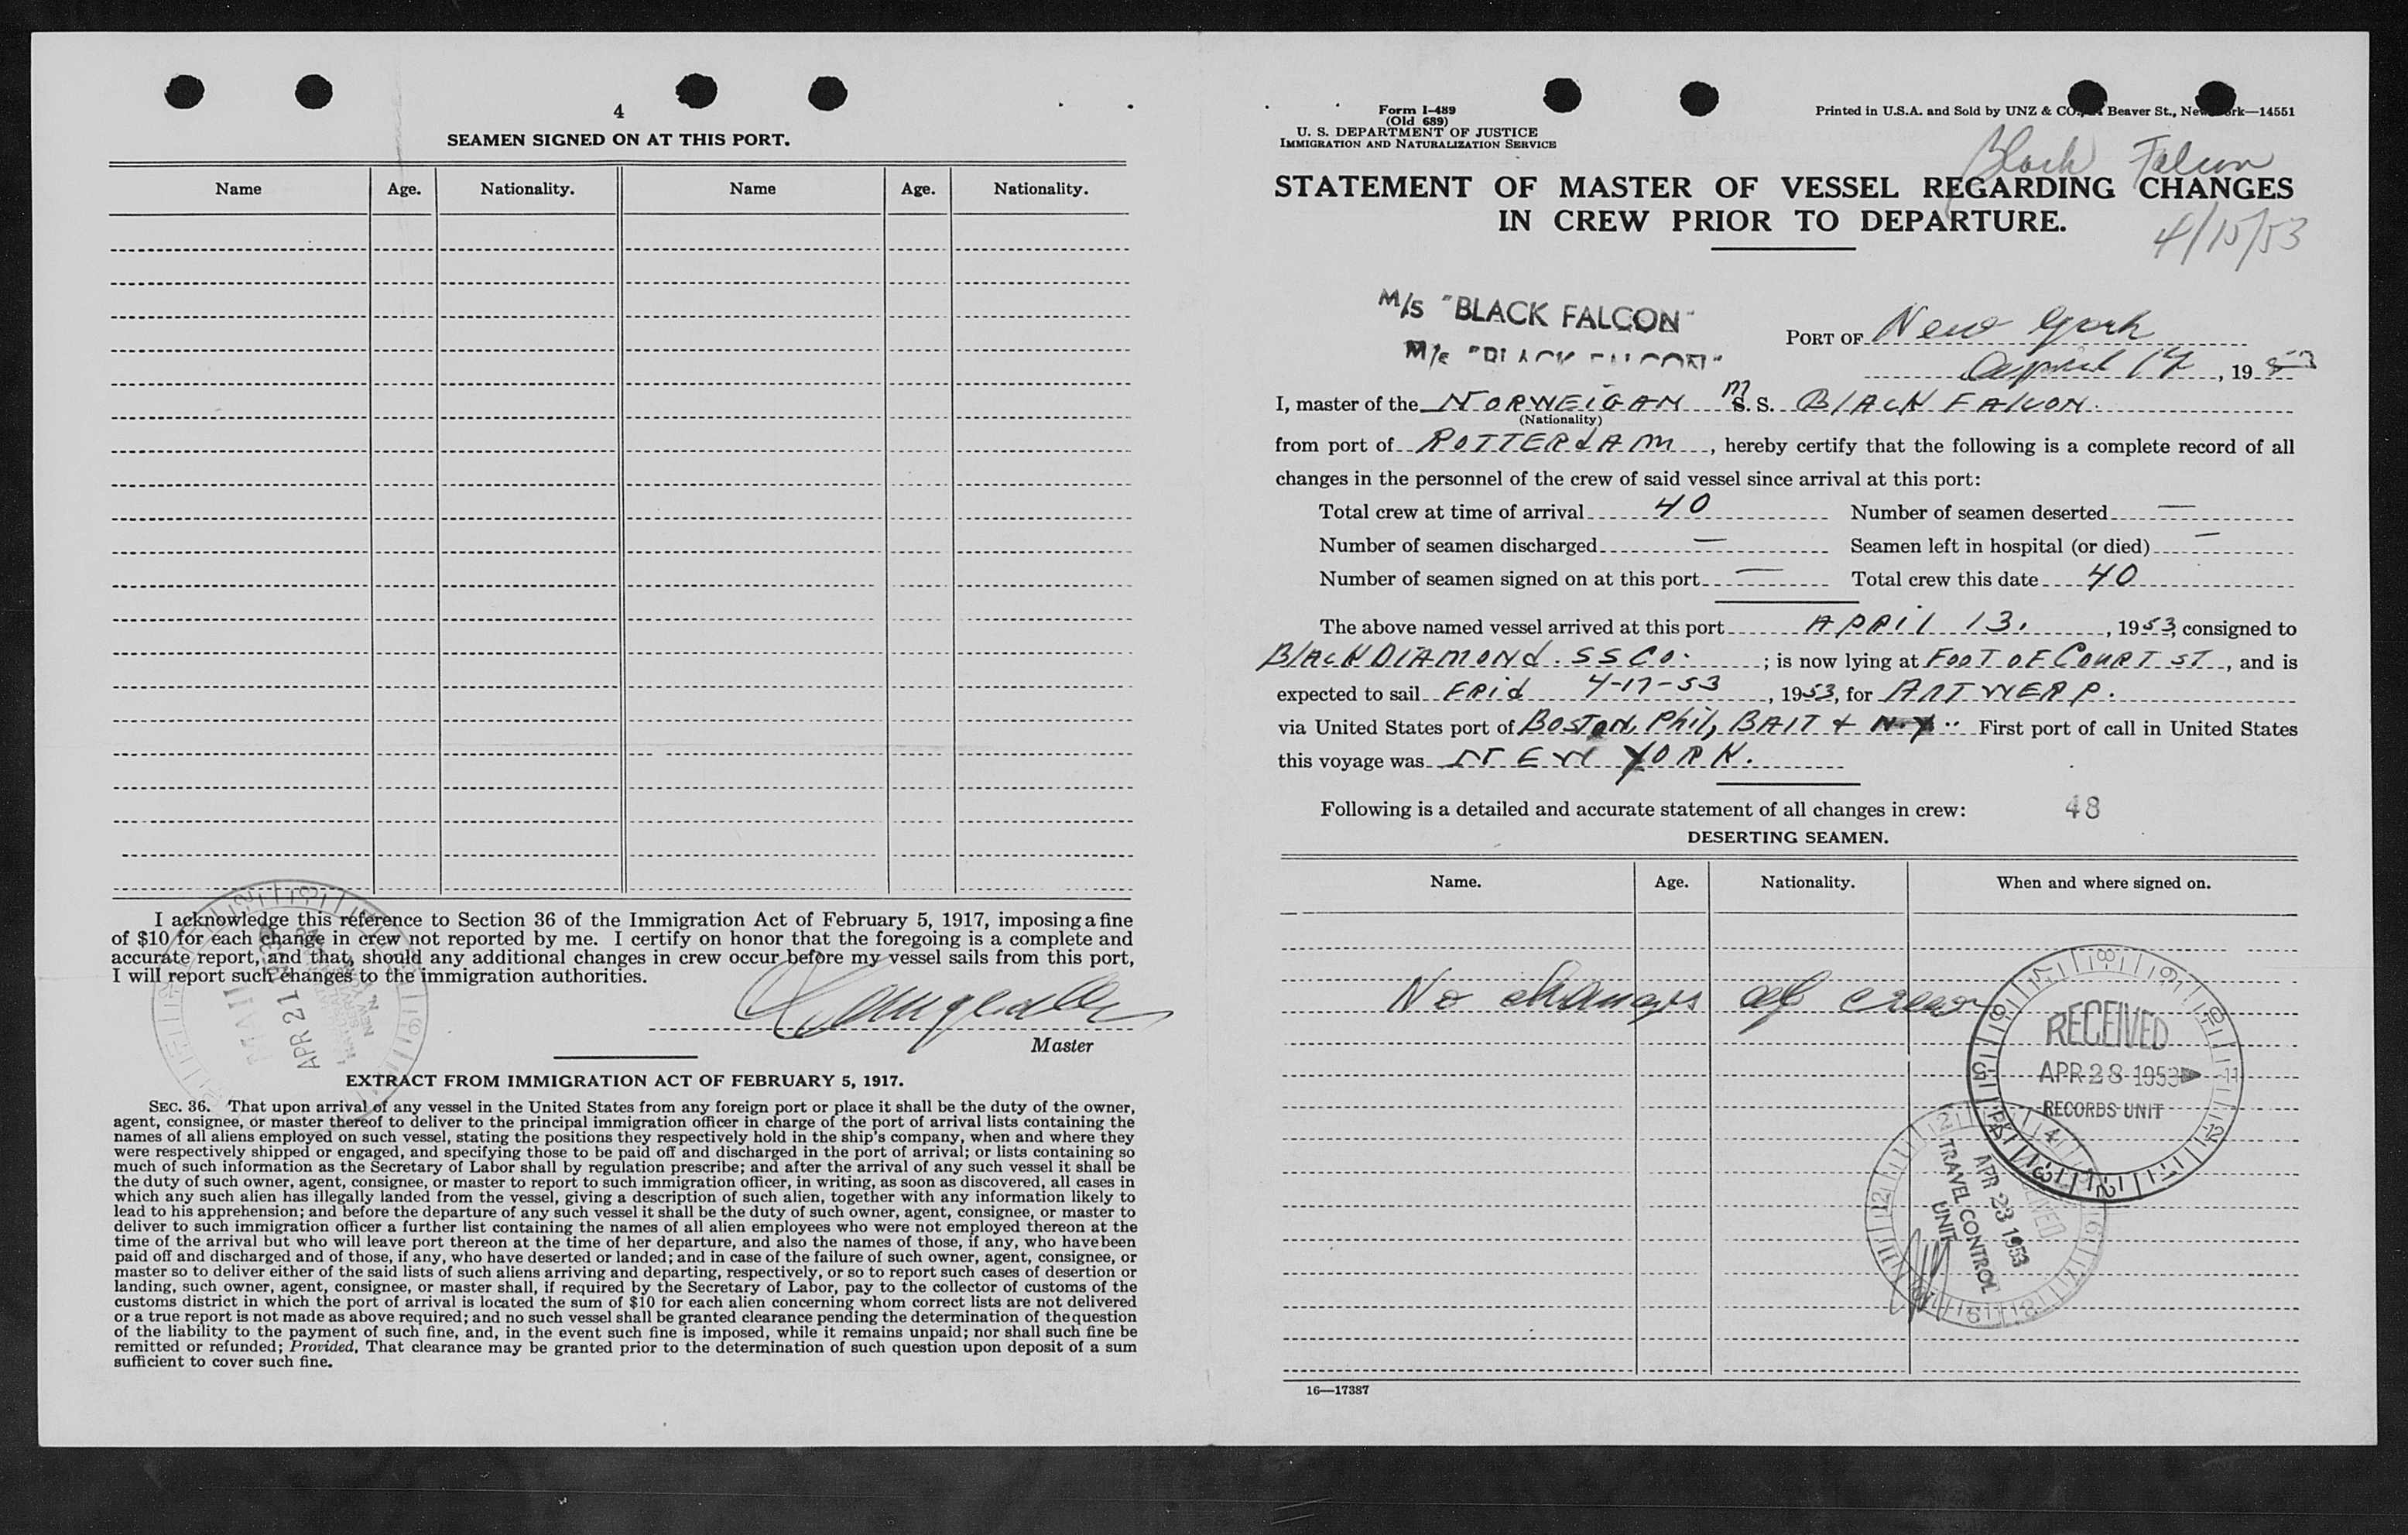 4
SEAMEN SIGNED ON AT THIS PORT.
Name Age. Nationality. Name Age. Nationality.
I acknowledge this reference to Section 36 of the Immigration Act of February 5, 1917, imposing a fine
of $10 for each change in crew not reported by me. I certify on honor that the foregoing is a complete and
accurate report, and that, should any additional changes in crew occur before my vessel sails from this port,
I will report such changes to the immigration authorities.
MAIL
APR 21
NEW
Master
EXTRACT FROM IMMIGRATION ACT OF FEBRUARY 5, 1917.
SEC. 36. That upon arrival of any vessel in the United States from any foreign port or place it shall be the duty of the owner,
agent, consignee, or master thereof to deliver to the principal immigration officer in charge of the port of arrival lists containing the
names of all aliens employed on such vessel, stating the positions they respectively hold in the ship's company, when and where they
were respectively shipped or engaged, and specifying those to be paid off and discharged in the port of arrival; or lists containing so
much of such information as the Secretary of Labor shall by regulation prescribe; and after the arrival of any such vessel it shall be
the duty of such owner, agent, consignee, or master to report to such immigration officer, in writing, as soon as discovered, all cases in
which any such alien has illegally landed from the vessel, giving a description of such alien, together with any information likely to
lead to his apprehension; and before the departure of any such vessel it shall be the duty of such owner, agent, consignee, or master to
deliver to such immigration officer a further list containing the names of all alien employees who were not employed thereon at the
time of the arrival but who will leave port thereon at the time of her departure, and also the names of those, if any, who have been
paid off and discharged and of those, if any, who have deserted or landed; and in case of the failure of such owner, agent, consignee, or
master so to deliver either of the said lists of such aliens arriving and departing, respectively, or so to report such cases of desertion or
landing, such owner, agent, consignee, or master shall, if required by the Secretary of Labor, pay to the collector of customs of the
customs district in which the port of arrival is located the sum of $10 for each alien concerning whom correct lists are not delivered
or a true report is not made as above required; and no such vessel shall be granted clearance pending the determination of the question
of the liability to the payment of such fine, and, in the event such fine is imposed, while it remains unpaid; nor shall such fine be
remitted or refunded; Provided, That clearance may be granted prior to the determination of such question upon deposit of a sum
sufficient to cover such fine.
Form I-489
(Old 689)
U. S. DEPARTMENT OF JUSTICE
IMMIGRATION AND NATURALIZATION SERVICE
Printed in U.S.A. and Sold by UNZ & CO., Beaver St., New York—14551
Black Falcon
STATEMENT OF MASTER OF VESSEL REGARDING CHANGES
IN CREW PRIOR TO DEPARTURE.
4/15/53
M/S "BLACK FALCON"
M/S "BLACK FALCON"
PORT OF New York
April 17, 1953
I, master of the NORWEIGAN M S. S. BlACK FAlCON.
(Nationality)
from port of ROTTERdAM, hereby certify that the following is a complete record of all
changes in the personnel of the crew of said vessel since arrival at this port:
Total crew at time of arrival 40 Number of seamen deserted —
Number of seamen discharged — Seamen left in hospital (or died) —
Number of seamen signed on at this port — Total crew this date 40
The above named vessel arrived at this port APRil 13., 1953, consigned to
BlACK DIAMONd. SS CO.; is now lying at FOOT OF COURT ST, and is
expected to sail FRid 4-17-53, 1953, for ANTWERP.
via United States port of BOSTON, Phil, BAlT + N.Y. First port of call in United States
this voyage was NEW YORK.
Following is a detailed and accurate statement of all changes in crew: 48
DESERTING SEAMEN.
Name. Age. Nationality. When and where signed on.
No changes of crew
RECEIVED
APR 28 1953
RECORDS UNIT
RECEIVED
APR 23 1953
TRAVEL CONTROL
UNIT
16—17387